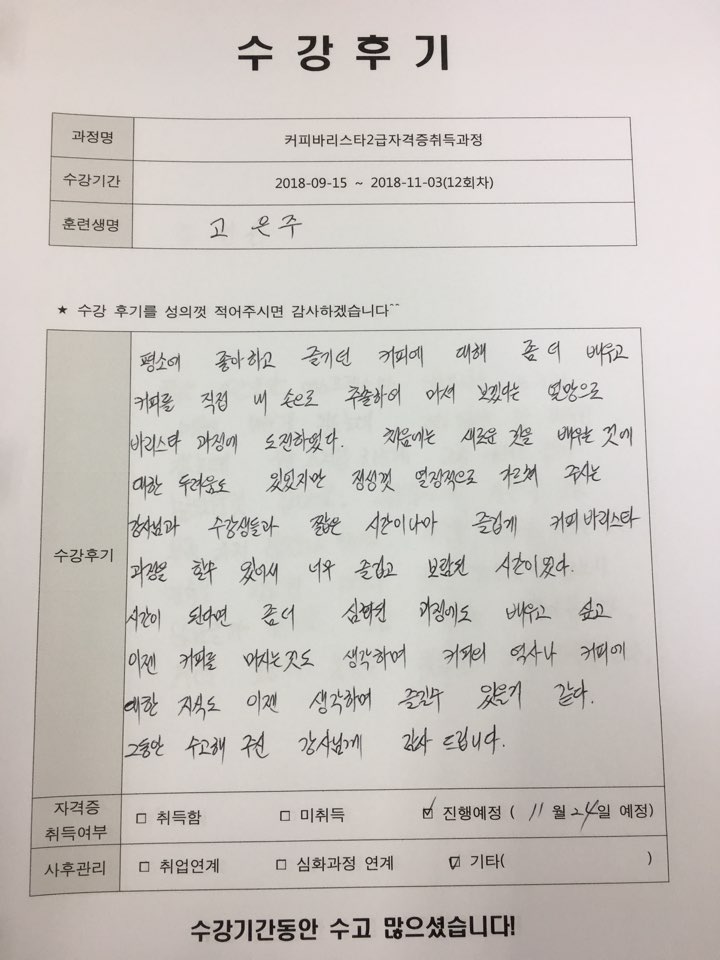 수강후기
과정명 커피바리스타2급자격증취득과정
수강기간 2018-09-15 ~ 2018-11-03(12회차)
훈련생명 고 은 주
★ 수강 후기를 성의껏 적어주시면 감사하겠습니다^^
수강후기
평소에 좋아하고 즐기던 커피에 대해 좀 더 배우고
커피를 직접 내 손으로 추출하여 마셔 보겠다는 열망으로
바리스타 과정에 도전하였다. 처음에는 새로운 것을 배우는 것에
대한 두려움도 있었지만 정성껏 열정적으로 가르쳐 주시는
강사님과 수강생들과 짧은 시간이나마 즐겁게 커피 바리스타
과정을 할수 있어서 너무 즐겁고 보람된 시간이었다.
시간이 된다면 좀 더 심화된 과정에도 배우고 싶고
이젠 커피를 마시는것도 생각하며 커피의 역사나 커피에
대한 지식도 이젠 생각하며 즐길수 있을거 같다.
그동안 수고해 주신 강사님께 감사 드립니다.
자격증 취득여부 □ 취득함 □ 미취득 ☑ 진행예정 ( 11 월 24일 예정)
사후관리 □ 취업연계 □ 심화과정 연계 ☑ 기타( )
수강기간동안 수고 많으셨습니다!